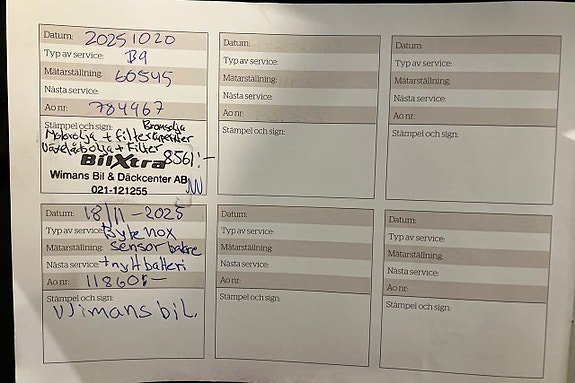 Datum: 20251020
Typ av service: B9
Mätarställning: 60545
Nästa service:
Ao nr: 784967
Stämpel och sign: Bromsolja
Motorolja + filter
Växellådolja + Filter
BilXtra 8561:-
Wimans Bil & Däckcenter AB
021-121255
Datum:
Typ av service:
Mätarställning:
Nästa service:
Ao nr:
Stämpel och sign:
Datum:
Typ av service:
Mätarställning:
Nästa service:
Ao nr:
Stämpel och sign:
Datum: 18/11-2025
Typ av service: Byte nox
Mätarställning: sensor bakre
Nästa service: + nytt batteri
Ao nr: 11860:-
Stämpel och sign:
Wimans bil
Datum:
Typ av service:
Mätarställning:
Nästa service:
Ao nr:
Stämpel och sign:
Datum:
Typ av service:
Mätarställning:
Nästa service:
Ao nr:
Stämpel och sign: